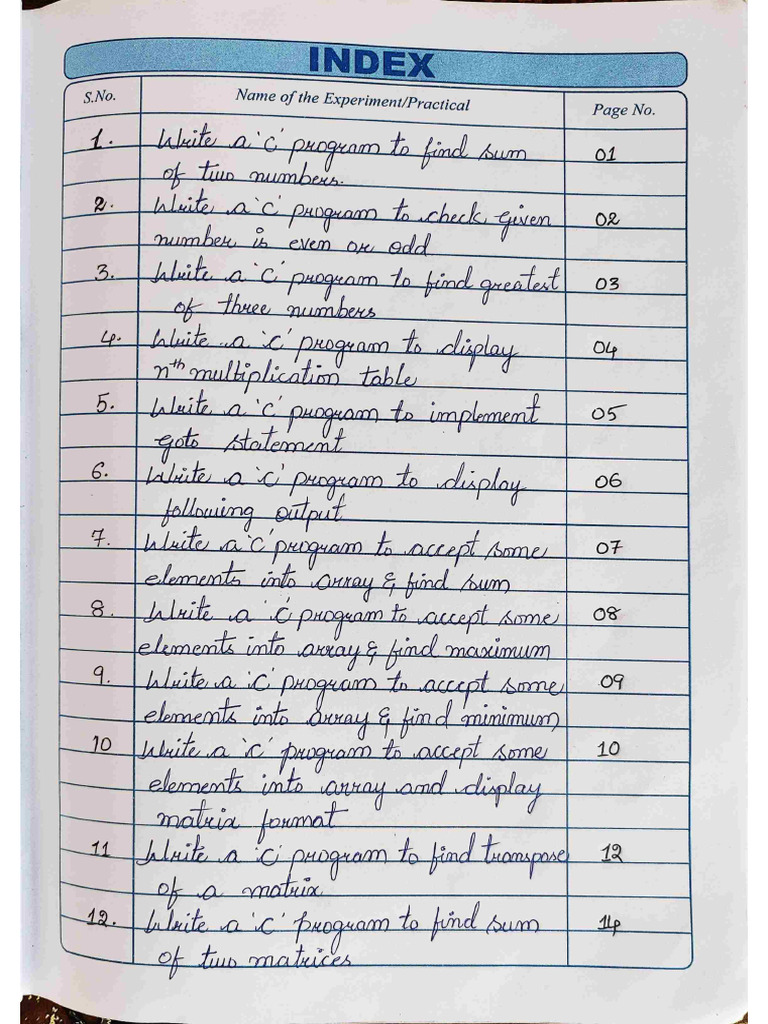 INDEX
S.No. Name of the Experiment/Practical Page No.
1. Write a 'C' program to find sum 01
of two numbers.
2. Write a 'C' program to check given 02
number is even or odd
3. Write a 'C' program to find greatest 03
of three numbers
4. Write a 'C' program to display 04
nth multiplication table
5. Write a 'C' program to implement 05
goto statement
6. Write a 'C' program to display 06
following output
7. Write a 'C' program to accept some 07
elements into array & find sum
8. Write a 'C' program to accept some 08
elements into array & find maximum
9. Write a 'C' program to accept some 09
elements into array & find minimum
10 Write a 'C' program to accept some 10
elements into array and display
matrix format
11 Write a 'C' program to find transpose 12
of a matrix
12. Write a 'C' program to find sum 14
of two matrices